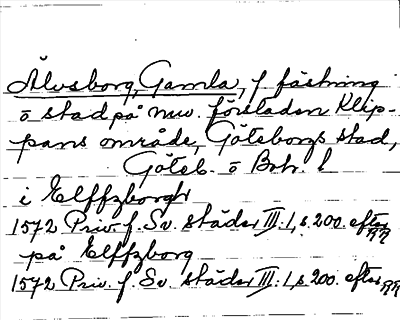 Älvsborg, Gamla, f. fästning
o stad på nuv. förstaden Klip-
pans område, Göteborgs stad,
Göteb. o Boh. l
i Elffzborgh
1572 Priv. f. Sv. städer III:1, s. 200. efter RR
på Elffzborg
1572 Priv. f. Sv. städer III:1, s. 200. efter RR